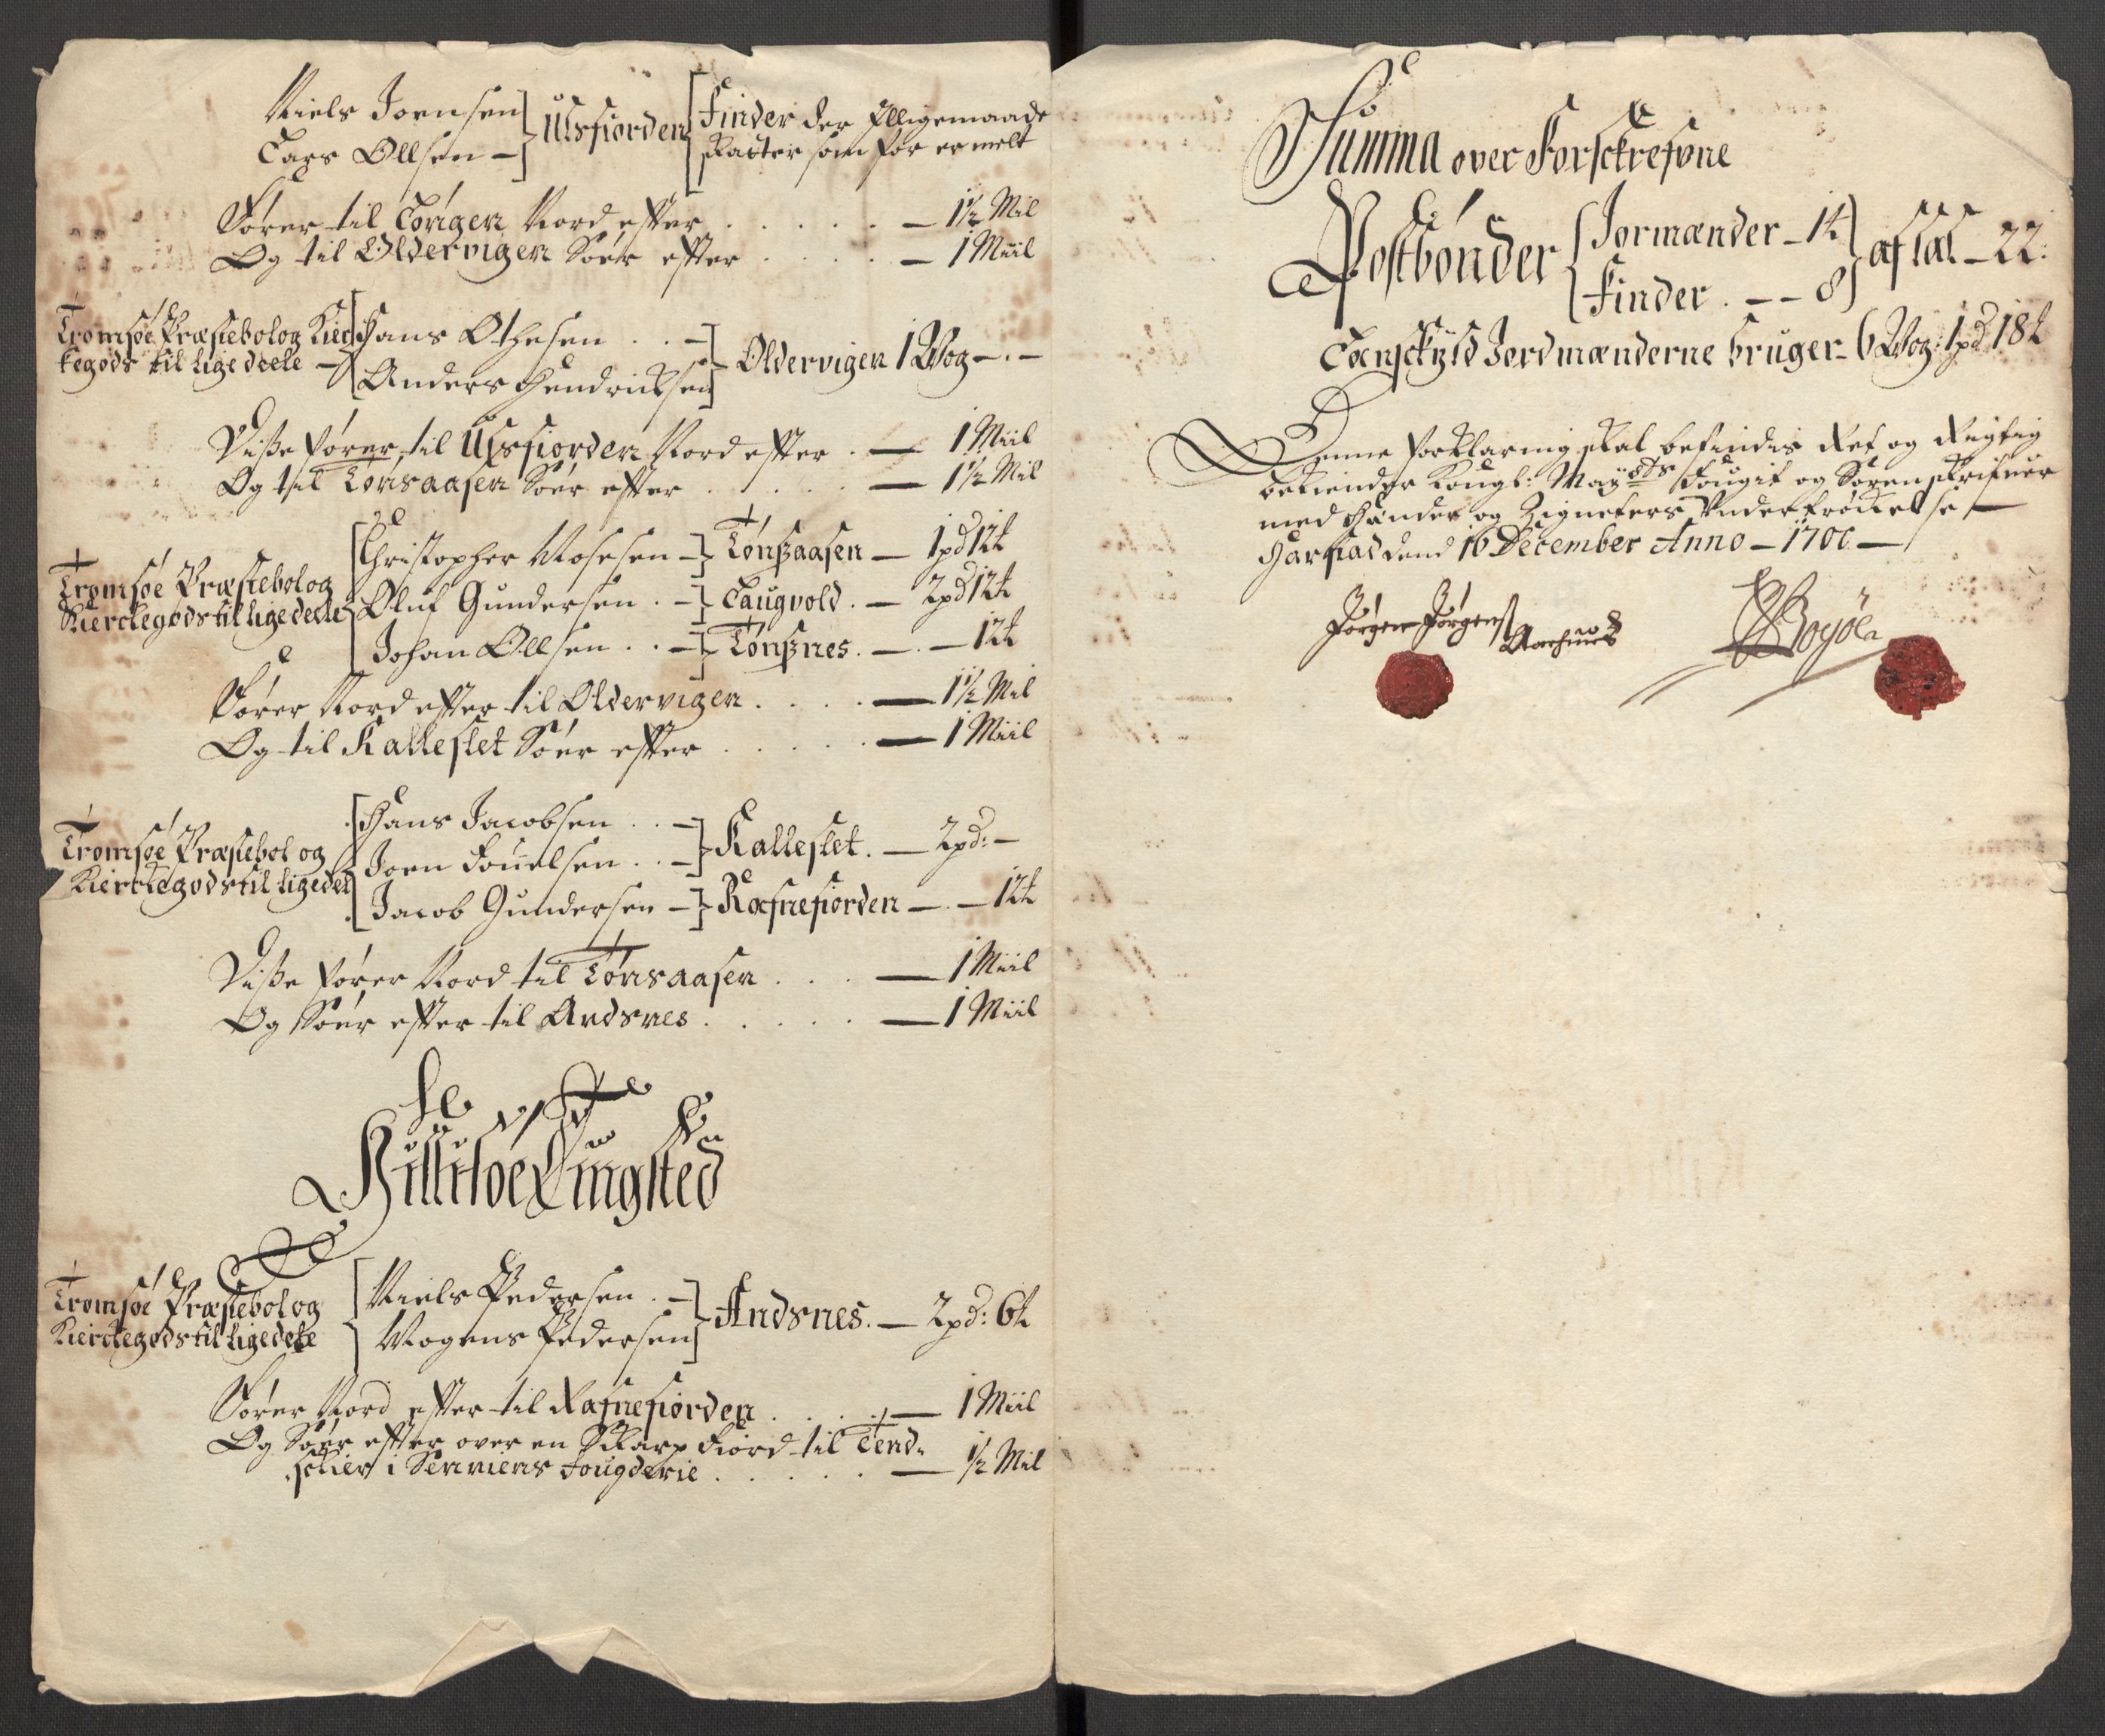 Niels Joensen
Lars Ollsen —
Ulsfiorden
Finder der Illigemaade
skatter som for er melt
Fører til Löngen Nord effter . . . . . — 1½ Mil
Og til Oldervigen Söer effter . . . . — 1 Miil
Tromsøe Præstebol og Kierc
kegods til lige deele —
Hans Othesen . . —
Anders Hendricksen
Oldervigen 1 Wog — . —
Disse fører til Ulsfiorden Nord effter . — 1 Miil
Og til Tønsaasen Söer effter . . . . — 1½ Mil
Tromsøe Præstebol og
Kierckegods til lige deele
Christopher Mosesen — Tønssaasen — 1 pd 12 ℔
Oluf Gundersen . — Laugvold . — 2 pd 12 ℔
Johan Ollsen . . — Tønssnes . — . — 12 ℔
Fører Nord effter til Oldervigen . . . . — 1½ Mil
Og til Kalleslet Söer effter . . . . . — 1 Miil
Tromsøe Præstebol og
Kierckegods til ligedel
Hans Jacobsen . . —
Joen Pouelsen . . —
Kalleslet . — 2 pd: —
Jacob Gundersen — Rafnefiorden — . — 12 ℔
Disse fører Nord til Tønsaasen . . . — 1 Miil
Og Söer effter til Andsnes . . . . . — 1 Miil
Hillisøe Tingsted
Tromsøe Præstebol og
Kierckegods til ligedele
Niels Pedersen . —
Mogens Pedersen
Andsnes . — 2 pd: 6 ℔
Fører Nord effter til Rafnefiorden . . . . — 1 Miil
Og Söer effter over en Skarp Fiord til Tend-
schier i Senniens Fougderie . . . . . — ½ Mil
Summa over Forschrefvne
Postbönder
Jormænder — 14
Finder . — — 8
af tal — 22:
Landschyld Jordmænderne bruger — 6 Wog: 1 pd 18 ℔
Denne forklaring skal befindis Ret og Rigtig
bekiender Kongl: Maÿsts Fougit og Sorenskrifver
med Hænder og Zigneters Undertrøckelse —
Harstad dend 16 December Anno — 1700 —
Jørgen Jørgens